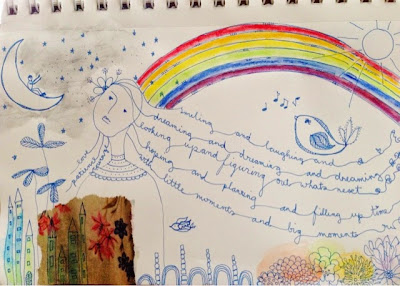 smiling and laughing and
dreaming and dreaming and dreaming
looking up and figuring out whats next
hoping and planning and filling up time
with little moments and big moments
love
patience